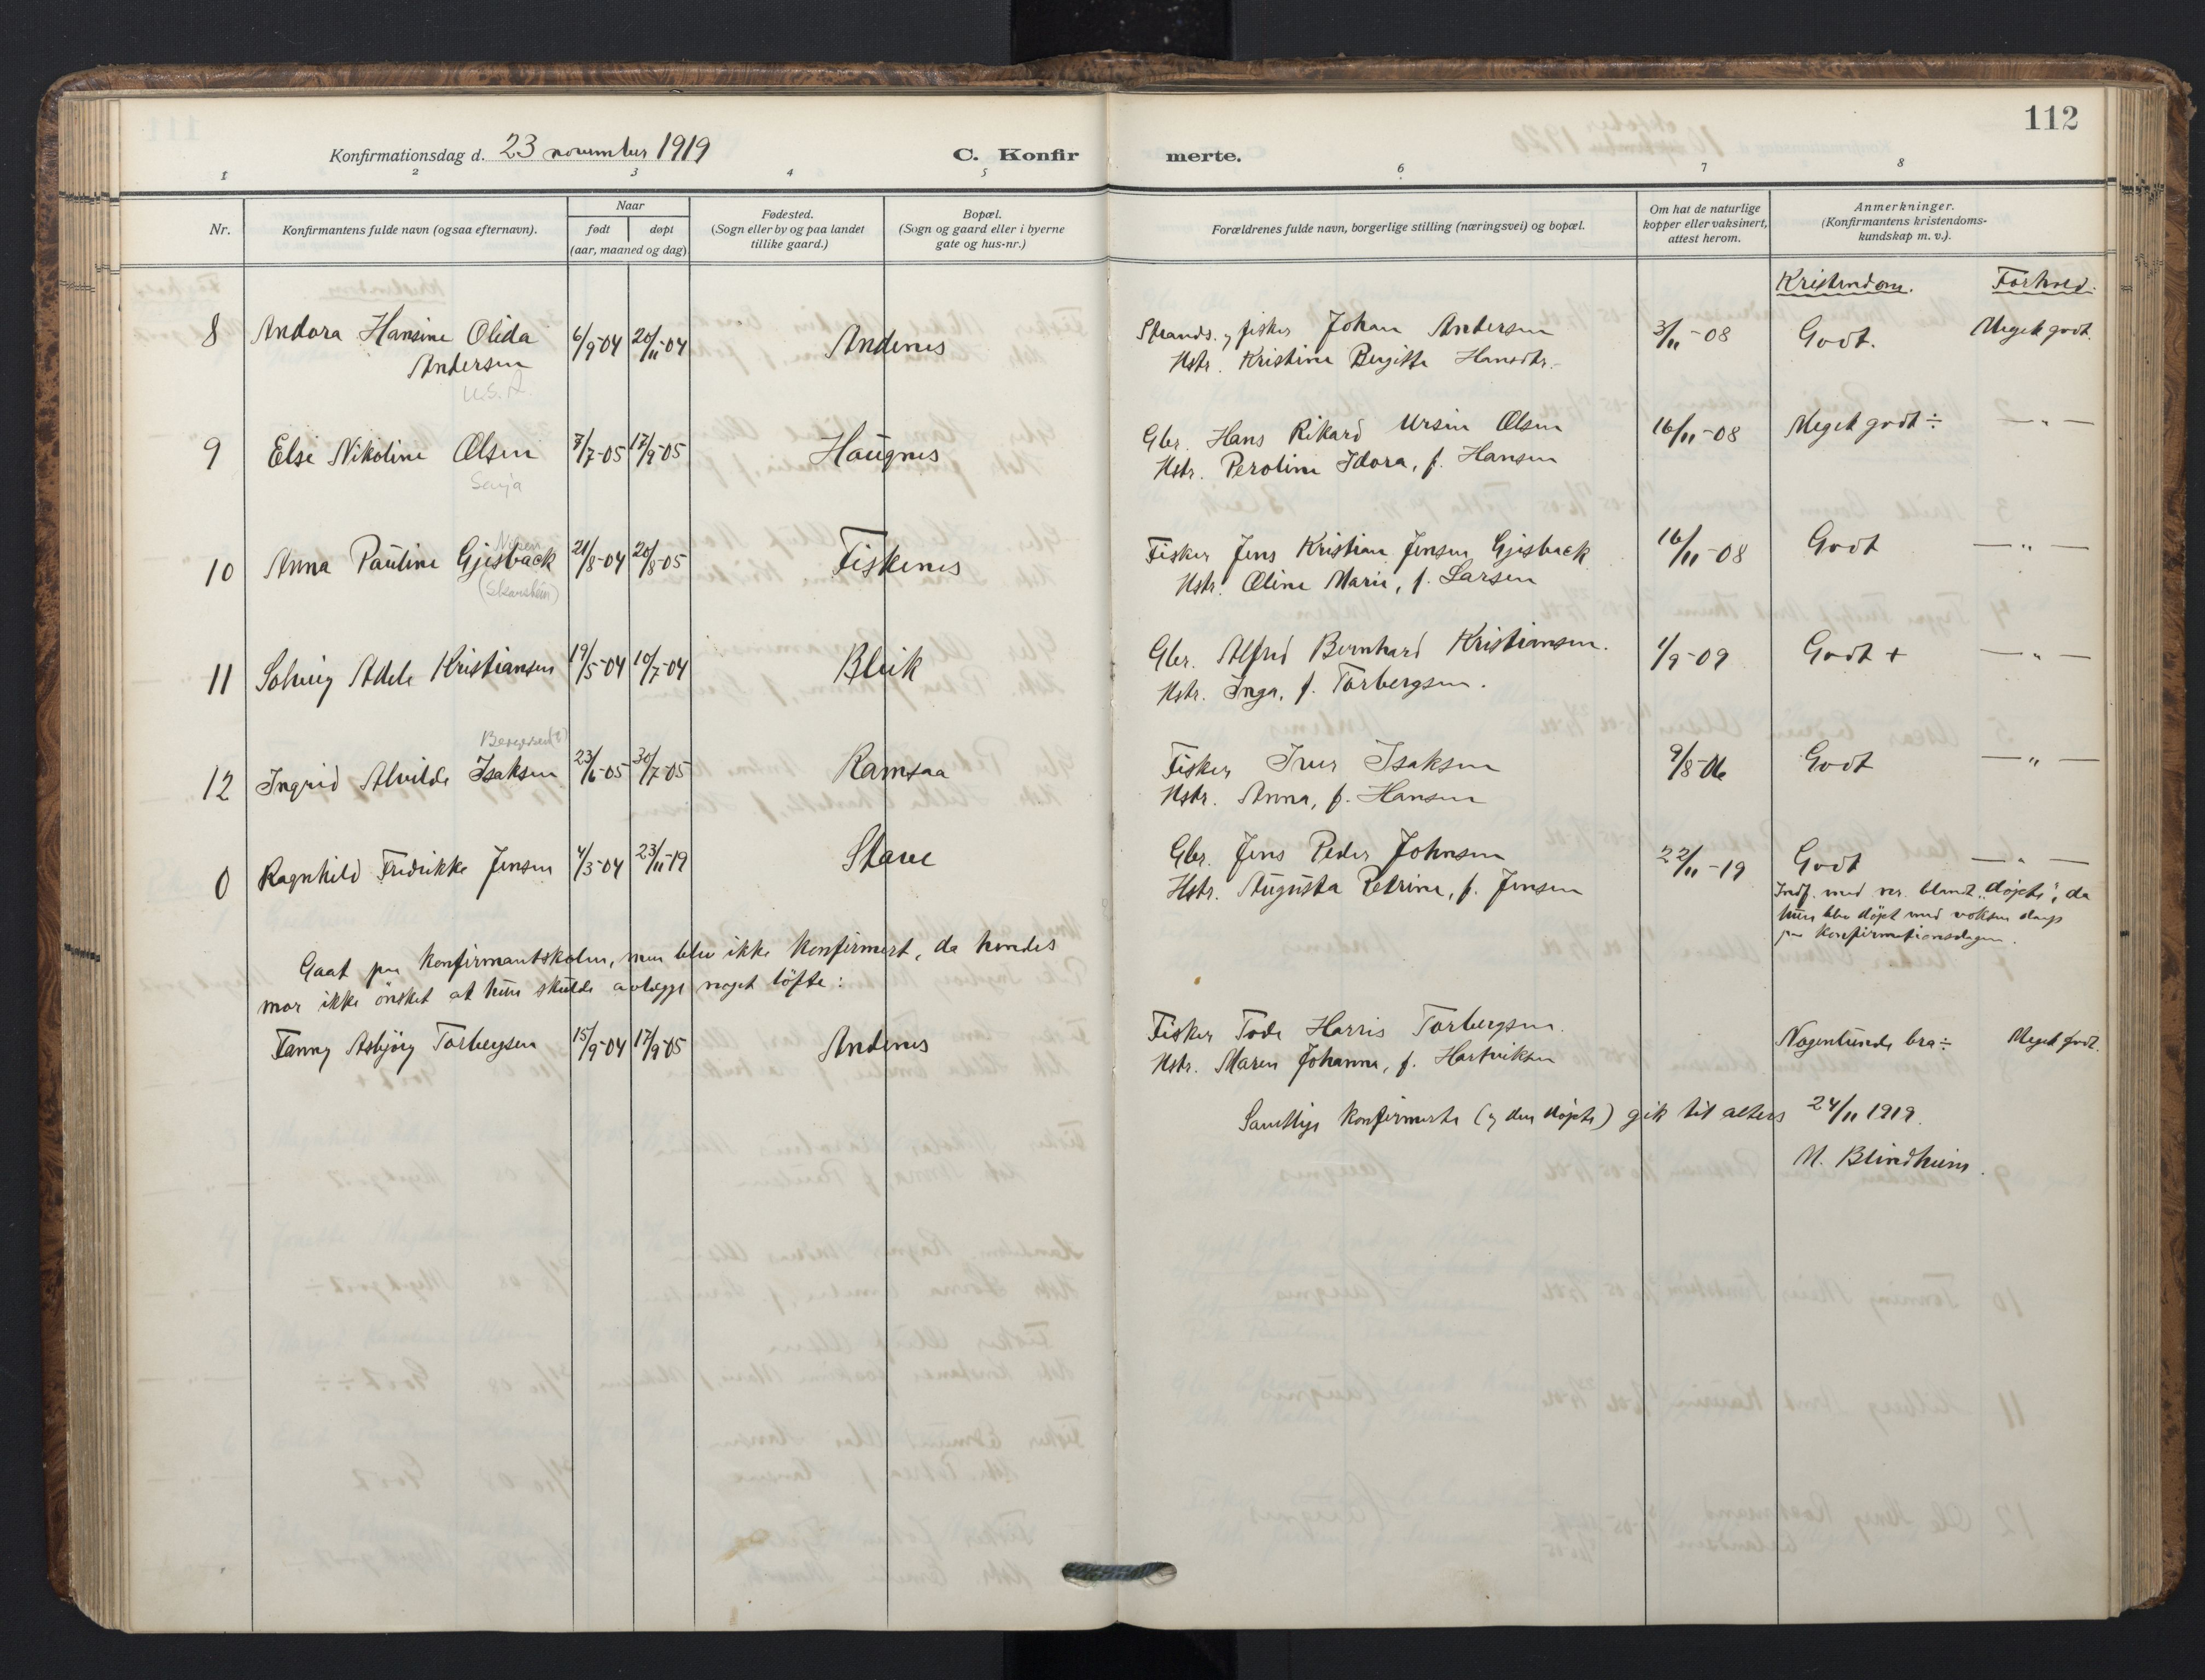 112
Konfirmationsdag d. 23 november 1919
C. Konfirmerte.
1 2 3 4 5 6 7 8
Nr.
Konfirmantens fulde navn (ogsaa efternavn).
Naar
født døpt
(aar, maaned og dag)
Fødested.
(Sogn eller by og paa landet
tillike gaard.)
Bopæl.
(Sogn og gaard eller i byerne
gate og hus-nr.)
Forældrenes fulde navn, borgerlige stilling (næringsvei) og bopæl.
Om hat de naturlige
kopper eller vaksinert,
attest herom.
Anmerkninger.
(Konfirmantens kristendoms-
kundskap m. v.).
Kristendom. Forhold.
8 Andora Hansine Olida 6/9-04 20/11-04 Andenes Strands. og fisker Johan Andersen 3/11-08 Godt. Meget godt.
Andersen Hstr. Kristine Birgitte Hansdtr.
U.S.A.
9 Elsi Nikoline Olsen 7/7-05 17/9-05 Haugnes Gbr. Hans Rikard Ursin Olsen 16/11-08 Meget godt ÷ — „ —
Senja Hstr. Peroline Idora, f. Hansen
10 Anna Pauline Gjisback 21/8-04 20/8-05 Fiskenes Fisker Jens Kristian Jensen Gjisback 16/11-08 Godt — „ —
Hstr. Oline Marie, f. Larsen
11 Solveig Adele Kristiansen 19/5-04 10/7-04 Bleik Gbr. Alfred Bernhard Kristiansen. 1/9-09 Godt + — „ —
Hstr. Inga, f. Torbergsen.
Bergersen(?)
12 Ingrid Alvilde Isaksen 23/6-05 30/7-05 Ramsaa Fisker Iver Isaksen 9/8-06 Godt — „ —
Hstr. Anna, f. Hansen
0 Ragnhild Fredrikke Jensen 4/3-04 23/11-19 Stave Gbr. Jens Peder Johnsen 22/11-19 Godt — „ —
Hstr. Augusta Petrine, f. Jensen
Indf. med nr. blandt „døpte", da
hun blev døpt med voksen daap
paa konfirmationsdagen.
Gaat paa konfirmantskolen, men blev ikke konfirmert, da hendes
mor ikke ønsket at hun skulde avlægge noget løfte:
Fanny Asbjørg Torbergsen 15/9-04 17/9-05 Andenes Fisker Tode Harris Torbergsen. Nogenlunde bra ÷ Meget godt.
Hstr. Maren Johanna, f. Hartviksen
Samtlige konfirmerte (og den døpte) gik til alters 24/11 1919.
M. Blindheim.